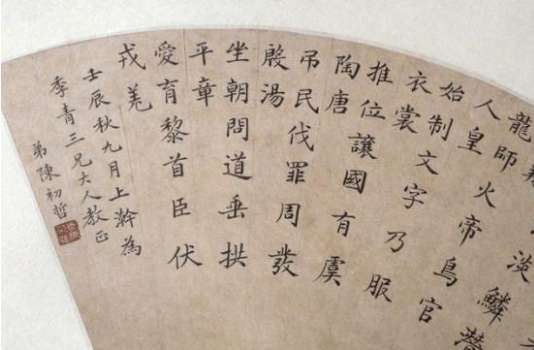 淡鱗潛
龍師火帝鳥官
人皇
始制文字乃服
衣裳
推位讓國有虞
陶唐
吊民伐罪周發
殷湯
坐朝問道垂拱
平章
愛育黎首臣伏
戎羌
壬辰秋九月上澣為
季青三兄大人教正
弟陳初哲